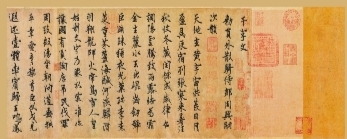 千字文
勑員外散騎侍郎周興嗣
次韻
天地玄黃宇宙洪荒日月
盈昃辰宿列張寒來暑往
秋收冬藏閏餘成歲律呂
調陽雲騰致雨露結為霜
金生麗水玉出崑岡劍號
巨闕珠稱夜光果珍李柰
菜重芥薑海鹹河淡鱗潛
羽翔龍師火帝鳥官人皇
始制文字乃服衣裳推位
讓國有虞陶唐弔民伐罪
周發殷湯坐朝問道垂拱
平章愛育黎首臣伏戎羌
遐邇壹體率賓歸王鳴鳳